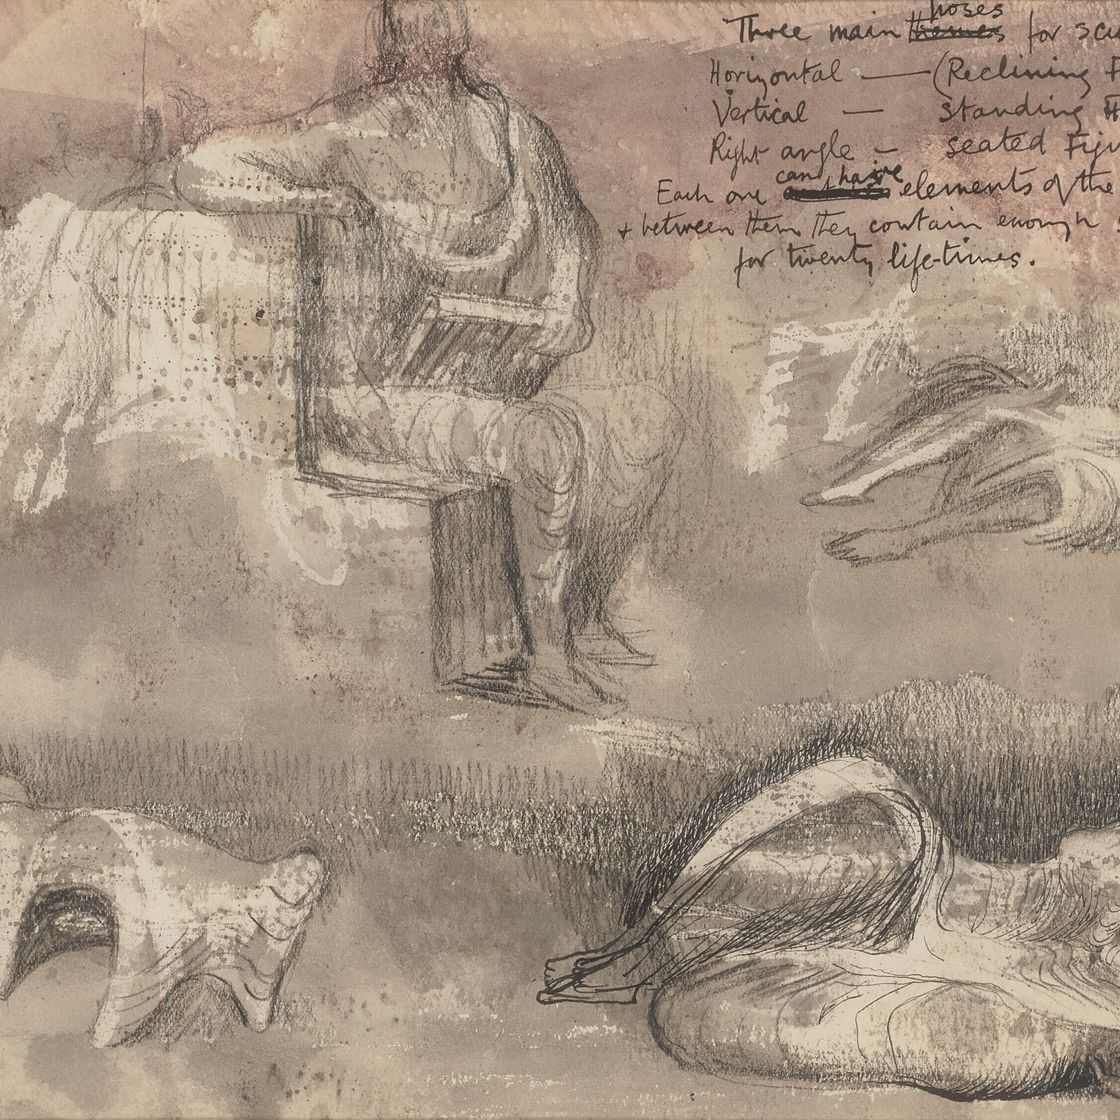 poses
Three main themes for scu
Horizontal — (Reclining F
Vertical — standing F
Right angle – seated Figu
can have
Each one elements of the
+ between them they contain enough
for twenty life-times.